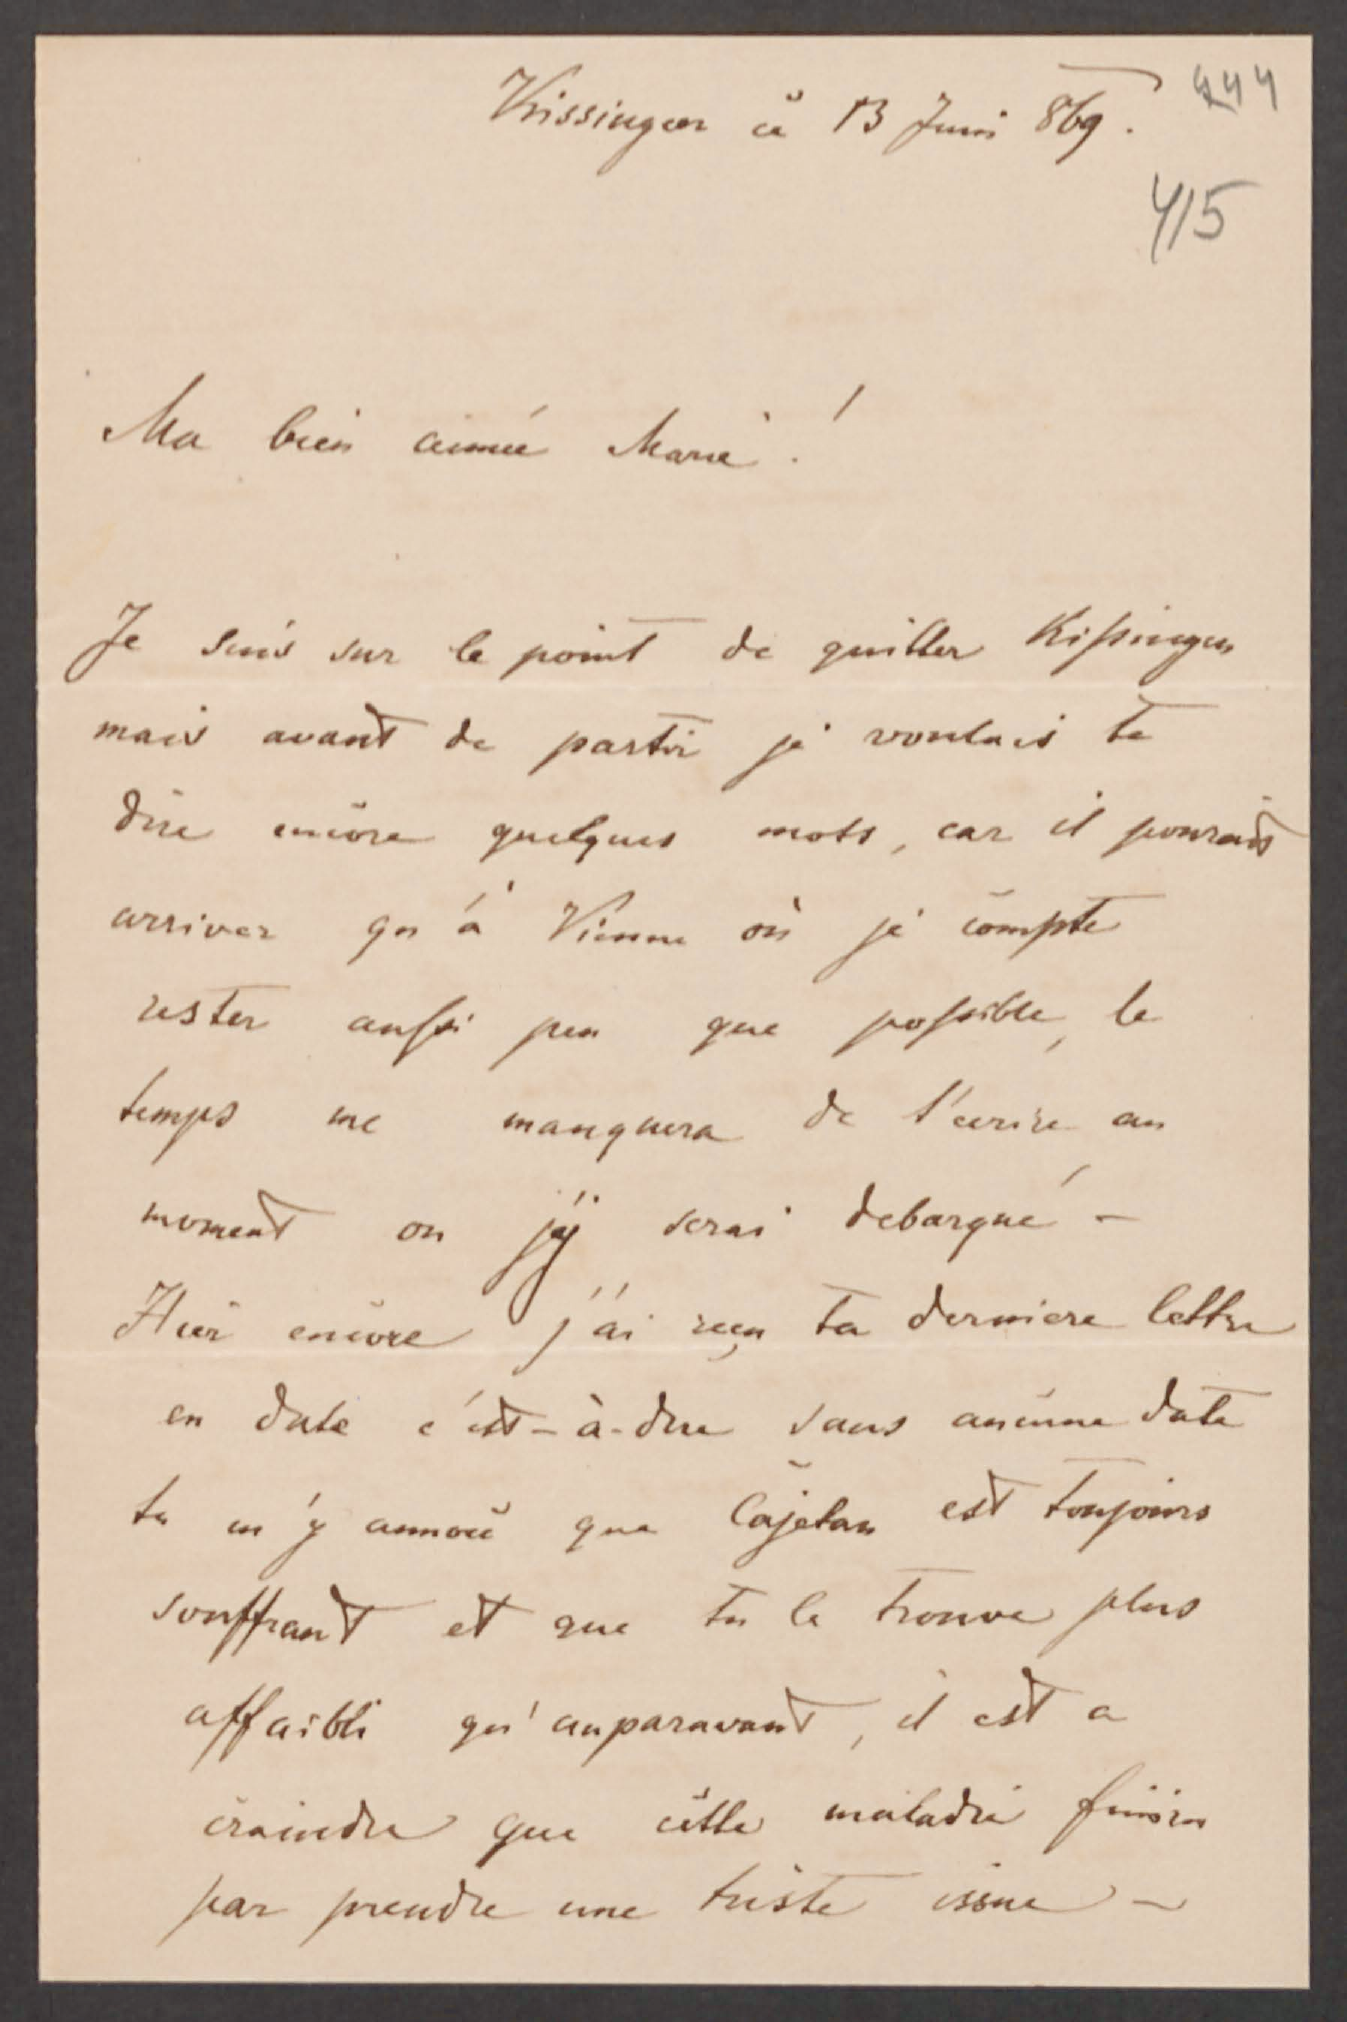 Kissingen ce 13 Juni 869.
444
415
Ma bien aimée Marie!
Je suis sur le point de quitter Kissingen
mais avant de partir je voulais te
dire encore quelques mots, car il pourait
arriver qu'à Vienne où je compte
rester aussi peu que possible, le
temps me manquera de t'ecrire au
moment ou j'y serai debarqué –
Hier encore j'ai reçu ta derniere lettre
en date c'est-à-dire sans aucune date
tu m'y que Cajetan est toujours
souffrant et que tu le trouve plus
affaibli qu'auparavant, il est a
craindre que cette maladie finira
par prendre une triste issue –